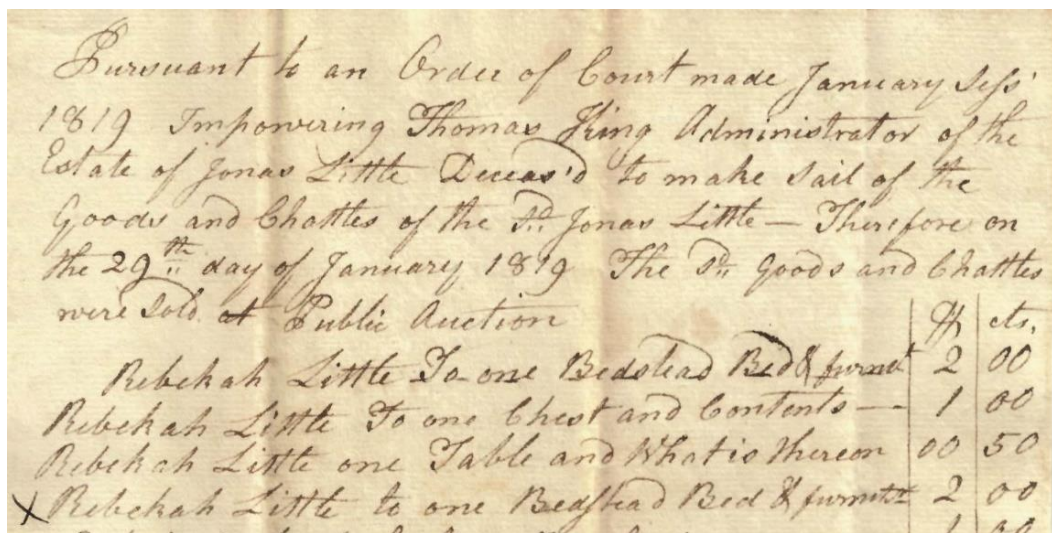 Pursuant to an Order of Court made January Sess'
1819 Impowering Thomas King Administrator of the
Estate of Jonas Little Deceas'd to make Sail of the
Goods and Chattles of the Sd. Jonas Little — Therefore on
the 29th day of January 1819 The Sd. Goods and Chattles
were Sold at Public Auction
$ cts.
Rebekah Little To one Bedstead Bed & furnit 2 00
Rebekah Little To one Chest and Contents — 1 00
Rebekah Little one Table and What is thereon 00 50
X Rebekah Little to one Bedstead Bed & furnitt 2 00